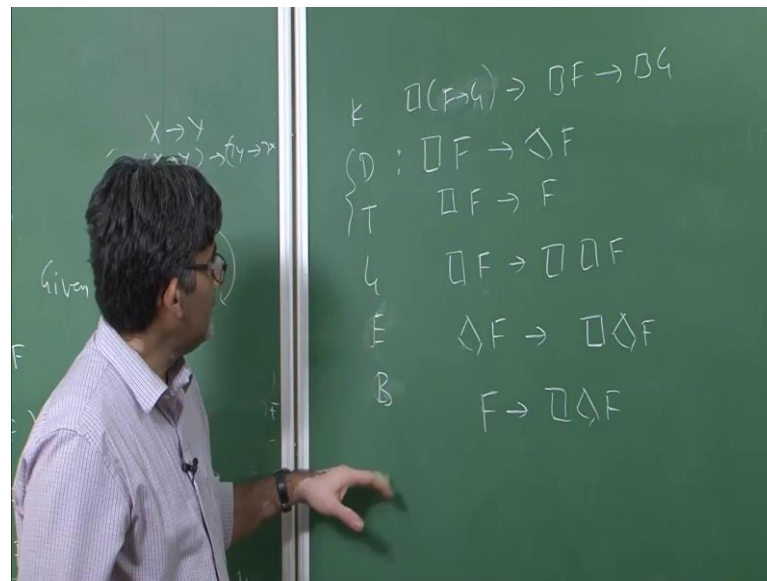 X → Y
(X → Y) → (¬Y → ¬X
Given
F
K □(F→G) → □F → □G
D : □F → ◇F
T □F → F
4 □F → □□F
E ◇F → □◇F
B F → □◇F